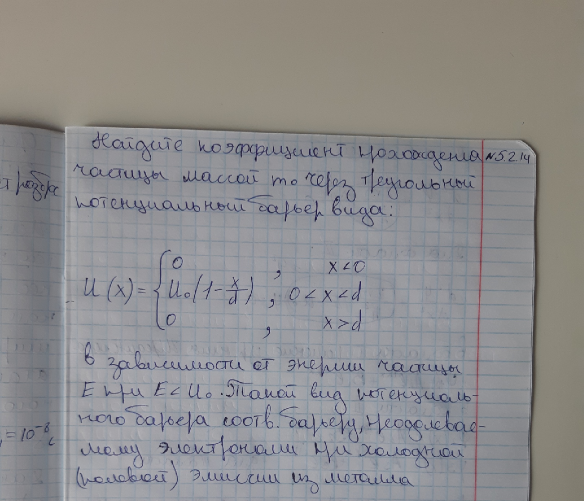 Найдите коэффициент прохождения №5.2.14
частицы массой m₀ через треугольный
потенциальный барьер вида:
U(x) = { 0 , x<0
U₀(1-x/d) , 0<x<d
0 , x>d
в зависимости от энергии частицы
E при E<U₀. Такой вид потенциаль-
ного барьера соотв. барьеру, преодолевае-
мому электронами при холодной
=10⁻⁸ с
(полевой) эмиссии из металла